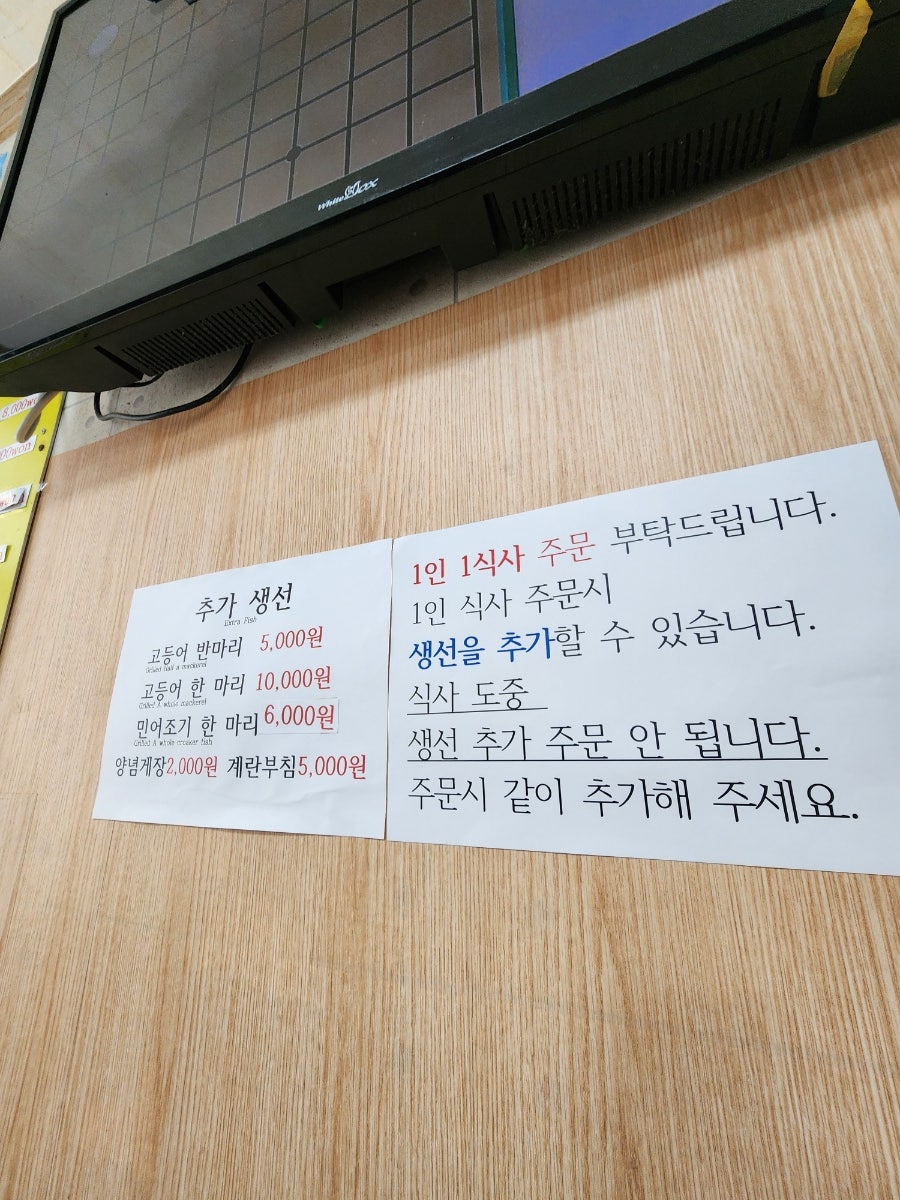 White BOX
8,000w
00won
추가 생선
Extra Fish
고등어 반마리 5,000원
Grilled half a mackerel
고등어 한 마리 10,000원
Grilled A whole mackerel
민어조기 한 마리 6,000원
Grilled A whole croaker fish
양념게장2,000원 계란부침5,000원
1인 1식사 주문 부탁드립니다.
1인 식사 주문시
생선을 추가할 수 있습니다.
식사 도중
생선 추가 주문 안 됩니다.
주문시 같이 추가해 주세요.